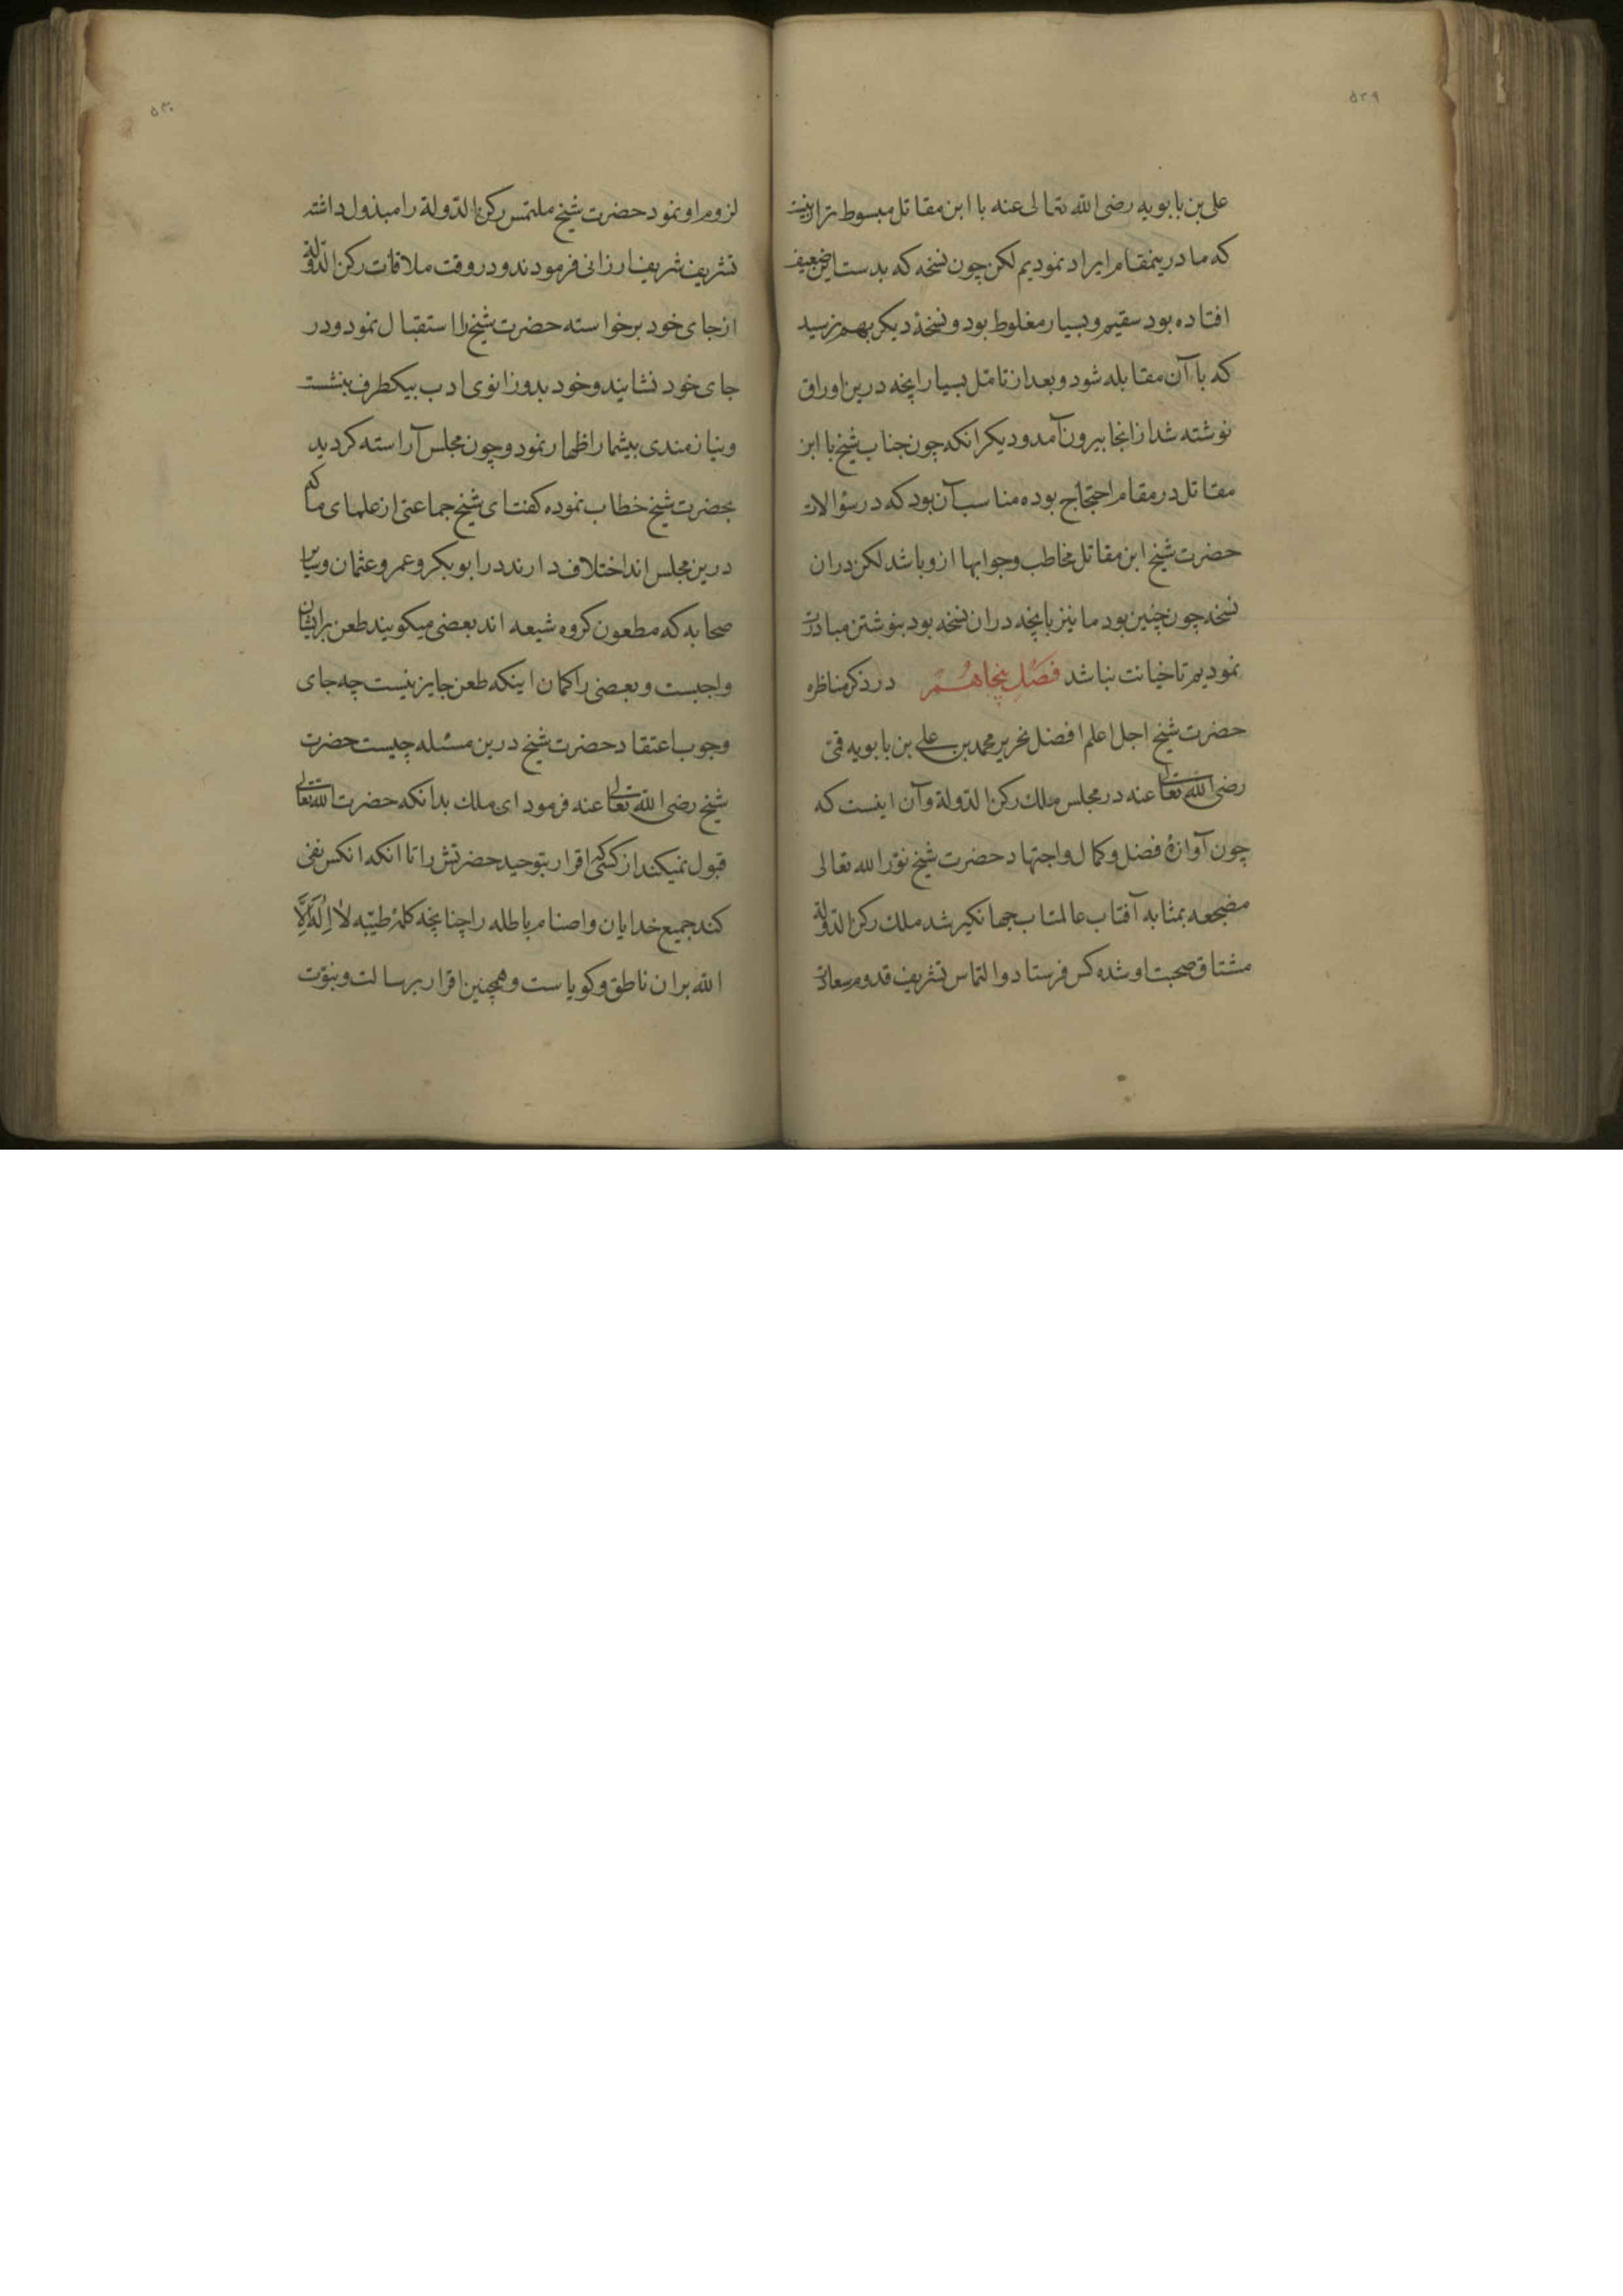 ۵۲۹
علی بن بابویه رضی الله تعالی عنه با ابن مقاتل مبسوط تر ازینست
که ما درینمقام ایراد نمودیم لکن چون نسخه که بدست این ضعیف
افتاده بود سقیم و بسیار مغلوط بود و نسخهٔ دیکر بهم نرسید
که با آن مقابله شود و بعد از تامل بسیار اینچه درین اوراق
نوشته شد از انجا بیرون آمد و دیکر انکه چون جناب شیخ با ابن
مقاتل در مقام احتجاج بوده مناسب آن بود که در سؤالات
حضرت شیخ ابن مقاتل مخاطب و جوابها ازو باشد لکن دران
نسخه چون چنین بود ما نیز بانچه دران نسخه بود بنوشتن مبادرت
نمودیم تا خیانت نباشد فصل پنجاهم در ذکر مناظره
حضرت شیخ اجل اعلم افضل نحریر محمد بن علی بن بابویه قمی
رضی الله تعالی عنه در مجلس ملک رکن الدّولة و آن اینست که
چون آوازهٔ فضل و کمال و اجتهاد حضرت شیخ نوّر الله تعالی
مضجعه بمثابه آفتاب عالمتاب جهانکیر شد ملک رکن الدّولة
مشتاق صحبت او شده کس فرستاد و التماس تشریف قدوم سعادت
۵۳۰
لزوم او نمود حضرت شیخ ملتمس رکن الدّولة را مبذول داشته
تشریف شریف ارزانی فرمودند و در وقت ملاقات رکن الدّولة
از جای خود برخواسته حضرت شیخ را استقبال نمود و در
جای خود نشایند و خود بدو زانوی ادب بیکطرف بنشست
و نیازمندی بیشمار اظهار نمود و چون مجلس آراسته کردید
بحضرت شیخ خطاب نموده کفت ای شیخ جماعتی از علمای ما که
درین مجلس اند اختلاف دارند در ابو بکر و عمر و عثمان و سایر
صحابه که مطعون کروه شیعه اند بعضی میکویند طعن بر ایشان
واجبست و بعضی را کمان اینکه طعن جایز نیست چه جای
وجوب اعتقاد حضرت شیخ درین مسئله چیست حضرت
شیخ رضی الله تعالی عنه فرمود ای ملک بدانکه حضرت الله تعالی
قبول نمیکند از کسی اقرار بتوحید حضرتش را تا انکه انکس نفی
کند جمیع خدایان و اصنام باطله را چنانچه کلمهٔ طیّبه لا اِلٰهَ اِلَّا
الله بران ناطق و کویاست و همچنین اقرار برسالت و نبوّت